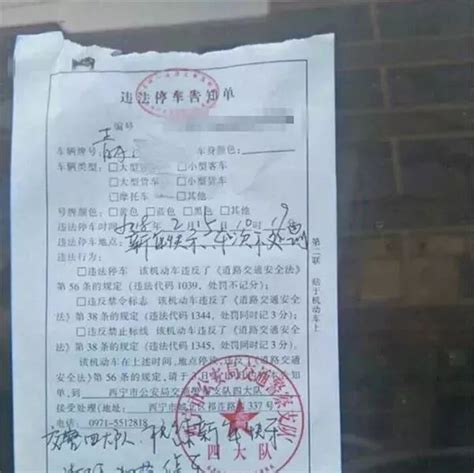 违法停车告知单
编号
车辆牌号：青 车身颜色：
车辆类型：□大型客车 □小型客车
□大型货车 □小型货车
□摩托车 □其他
号牌颜色：□黄色 □蓝色 □黑色 □其他
违法停车时间：2018年2月15日10时19
违法停车地点：新年快乐，本次不处罚
违法行为：
□违法停车 该机动车违反了《道路交通安全法》
第56条的规定（违法代码1039，处罚不记分）；
□违反禁令标志 该机动车违反了《道路交通安全
法》第38条的规定（违法代码1344，处罚同时记3分）；
□违反禁止标线 该机动车违反了《道路交通安全
法》第38条的规定（违法代码1345，处罚同时记3分）；
该机动车在上述时间、地点停放，违反《道路交通
安全法》第56条规定，请于3日
西宁市公安局交通警察支队四大队
接受处理（地址：西宁市城北区祁连路337号）
电话：0971-5512818
交警四大队 祝您新年快乐
第二联 贴于机动车上
公安局交通警察支队
四大队